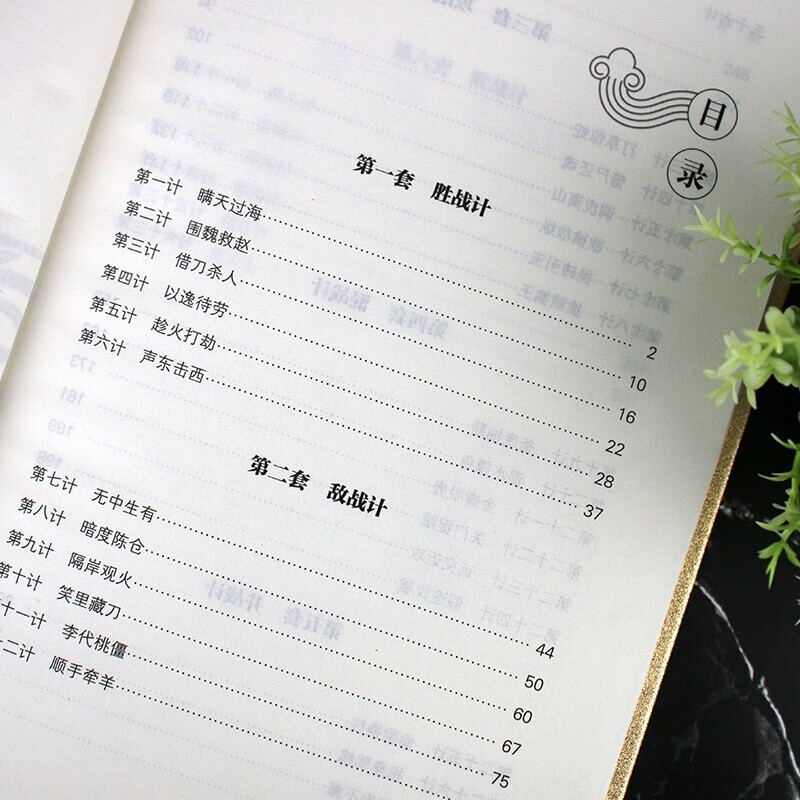 目录
第一套 胜战计
第一计 瞒天过海 2
第二计 围魏救赵 10
第三计 借刀杀人 16
第四计 以逸待劳 22
第五计 趁火打劫 28
第六计 声东击西 37
第二套 敌战计
第七计 无中生有 44
第八计 暗度陈仓 50
第九计 隔岸观火 60
第十计 笑里藏刀 67
十一计 李代桃僵 75
二计 顺手牵羊